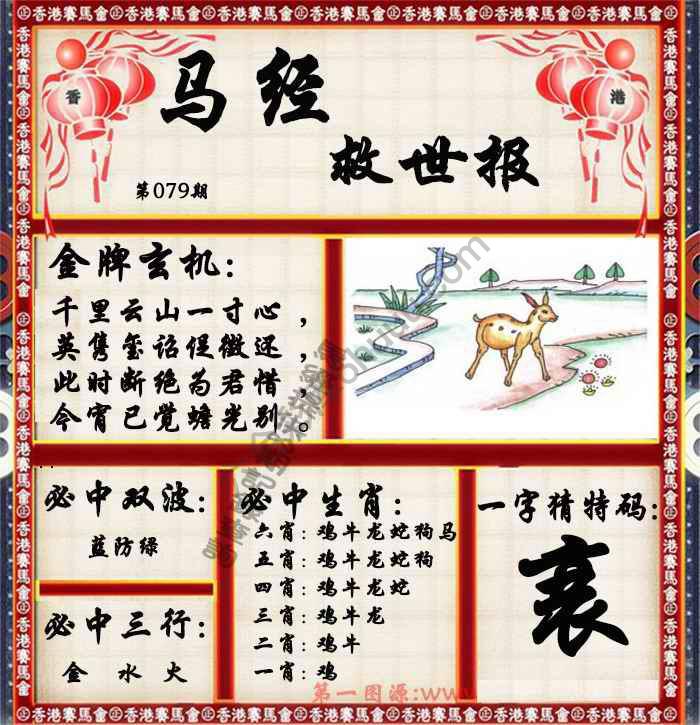 香港賽馬會
香
港
马经
救世报
第079期
金牌玄机：
千里云山一寸心，
英隽玺诏促徵还，
此时断绝为君惜，
今宵已觉蟾光别。
必中双波：
蓝防绿
必中三行：
金 水 火
必中生肖：
六肖：鸡牛龙蛇狗马
五肖：鸡牛龙蛇狗
四肖：鸡牛龙蛇
三肖：鸡牛龙
二肖：鸡牛
一肖：鸡
一字猜特码：
衰
第一图源:www